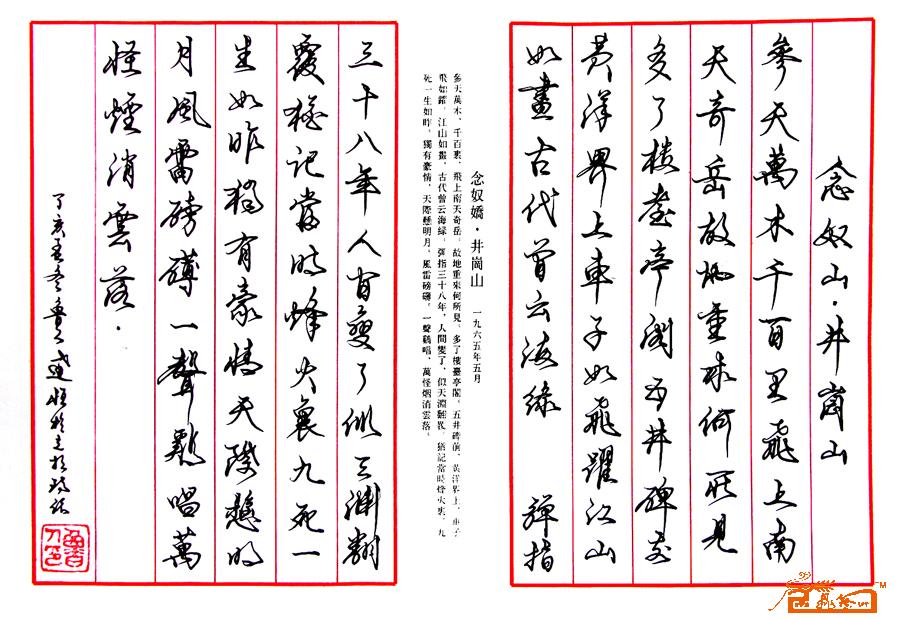 念奴山·井崗山
參天萬木千百里飛上南
天奇岳故地重來何所見
多了樓臺亭閣五井碑前
黃洋界上車子如飛躍江山
如畫古代曾云海綠 彈指
念奴嬌·井崗山 一九六五年五月
參天萬木,千百裏,飛上南天奇岳。故地重來何所見,多了樓臺亭閣。五井碑前,黃洋界上,車子
飛如躍。江山如畫,古代曾云海綠。彈指三十八年,人間變了,似天淵翻覆。猶記當時烽火裏,九
死一生如昨。獨有豪情,天際懸明月,風雷磅礴。一聲鷄唱,萬怪烟消雲落。
三十八年人間變了似天淵翻
覆猶記當時烽火裏九死一
生如昨獨有豪情天際懸明
月風雷磅礴一聲鷄唱萬
怪煙消雲落.
丁亥孟冬魯
TM